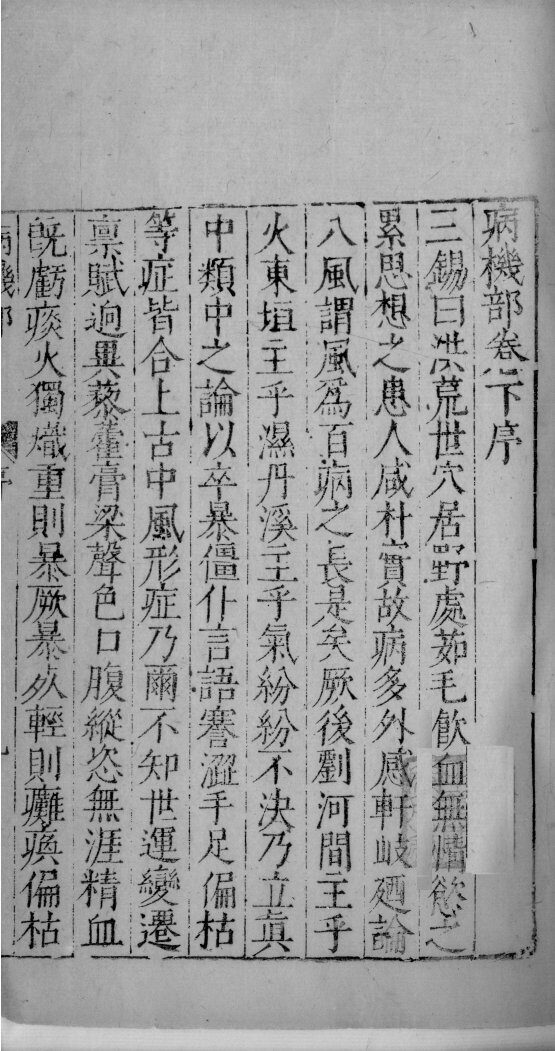 病機部卷下序
三錫曰洪荒世穴居野處茹毛飲血無情慾之
累思想之患人咸朴實故病多外感軒岐廼論
八風謂風為百病之長是矣厥後劉河間主乎
火東垣主乎濕丹溪主乎氣紛紛不決乃立眞
中類中之論以卒暴僵仆言語謇澀手足偏枯
等症皆合上古中風形症乃爾不知世運變遷
禀賦逈異藜藿膏梁聲色口腹縱恣無涯精血
旣虧痰火獨熾重則暴厥暴死輕則癱瘓偏枯
病機部
序